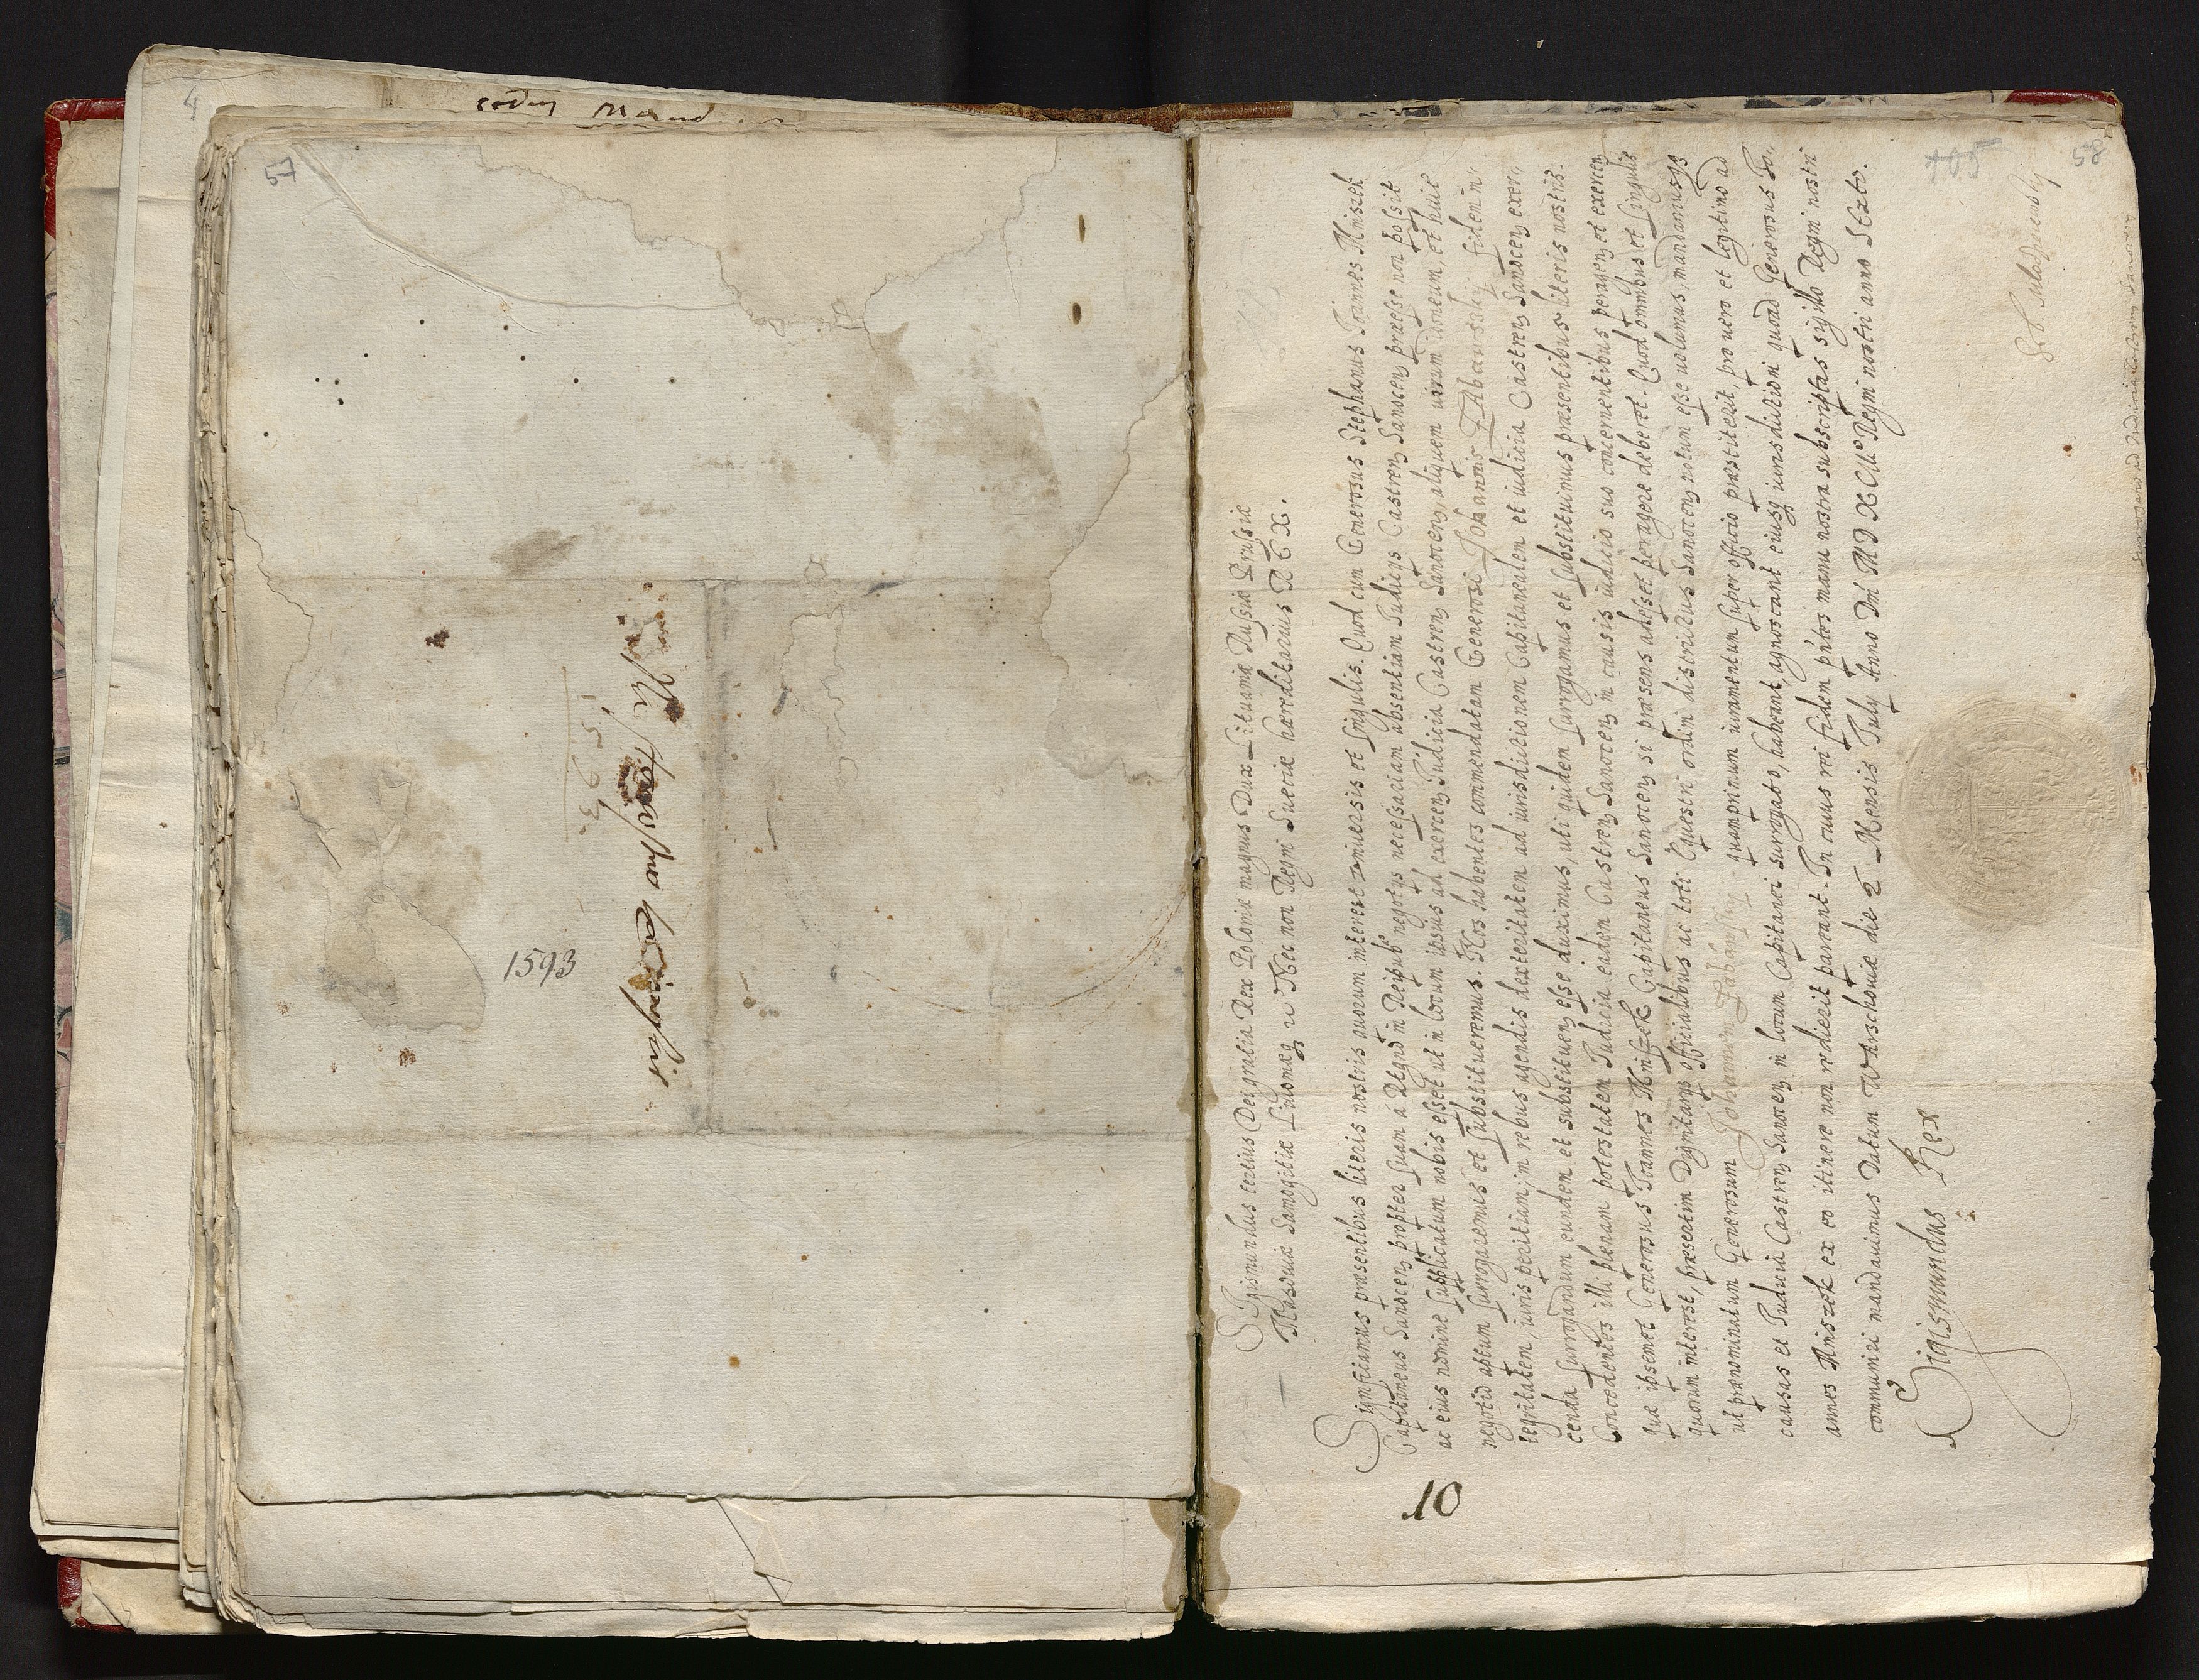 57
1593
58
10
SIgismundus tertius Dei gratia Rex Poloniæ magnus Dux Lituaniæ Russiæ Prussiæ
Masouiæ Samogitiæ Liuoniæq Nec non Regni Sueciæ hæreditarius REX.
Significamus præsentibus literis nostris quorum interest vniuersis et singulis. Quod cum Generosus Stephanus Joannes Mniszek
Capitaneus Sanocen propter suam á Regno in Reipub negotys necessariam absentiam Judicys Castren Sanocen præesse non possit
ac eius nomine supplicatum nobis esset ut in locum ipsius ad exercen Judicia Castren Sanocen aliquem uirum idoneum, et huic
negotio aptum surrogaremus et substitueremus. Nos habentes commendatam Generosi Johannis Zabawski fidem in,
tegritatem, iuris peritiam, in rebus agendis dexteritatem ad iurisditionem Capitanealem et iudicia Castren Sanocen exer,
cenda surrogandum eundem et substituen esse duximus, uti quidem surrogamus et substituimus præsentibus literis nostris.
Concedentes illi plenam potestatem Judicia eadem Castren Sanocen in causis iudicio suo concernentibus peragen et exercen
quæ ipsemet Generosus Joannes Mniszek Capitaneus Sanocen si præsens adesset peragere deberet. Quod omnibus et singulis
quorum interest, præsertim Dignitarys officialibus ac toti Equestri ordini districtus Sanocen notum esse uolumus, mandamusq
ut prænominatum Generosum Johannem Zabawski quamprimum iuramentum super officio præstiterit, pro uero et legitimo ad
causas et Judicia Castren Sanocen in locum Capitanei surrogato, habeant, agnoscant eiusq iurisdictioni quoad Generosus Jo,
annes Mniszek ex eo itinere non redierit pareant. In cuius rei fidem pntes manu nostra subscriptas sigillo Regni nostri
communiri mandauimus Datum Warschouiæ die 2 Mensis July Anno Dni MDXCIII Regni nostri anno Sexto.
Sigismundus Rex